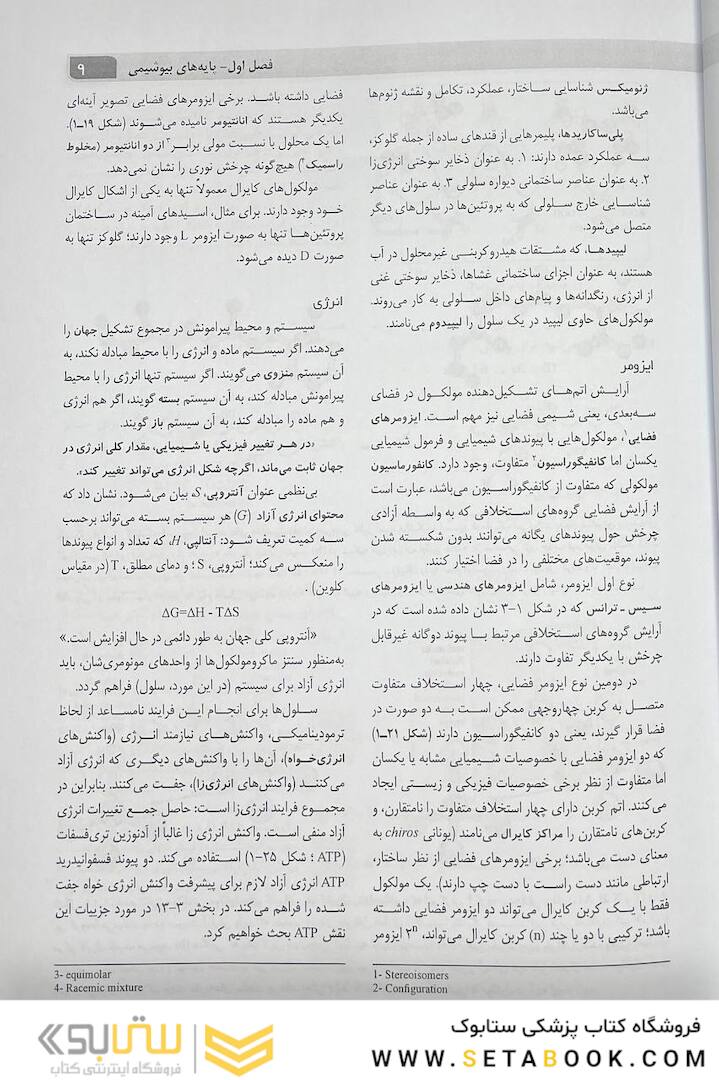 فصل اول- پایه‌های بیوشیمی
۹
ژنومیکس شناسایی ساختار، عملکرد، تکامل و نقشه ژنوم‌ها
می‌باشد.
پلی‌ساکاریدها، پلیمرهایی از قندهای ساده از جمله گلوکز،
سه عملکرد عمده دارند: ۱. به عنوان ذخایر سوختی انرژی‌زا
۲. به عنوان عناصر ساختمانی دیواره سلولی ۳. به عنوان عناصر
شناسایی خارج سلولی که به پروتئین‌ها در سلول‌های دیگر
متصل می‌شود.
لیپیدها، که مشتقات هیدروکربنی غیرمحلول در آب
هستند، به عنوان اجزای ساختمانی غشاها، ذخایر سوختی غنی
از انرژی، رنگدانه‌ها و پیام‌های داخل سلولی به کار می‌روند.
مولکول‌های حاوی لیپید در یک سلول را لیپیدوم می‌نامند.
ایزومر
آرایش اتم‌های تشکیل‌دهنده مولکول در فضای
سه‌بعدی، یعنی شیمی فضایی نیز مهم است. ایزومرهای
فضایی۱، مولکول‌هایی با پیوندهای شیمیایی و فرمول شیمیایی
یکسان اما کانفیگوراسیون۲ متفاوت، وجود دارد. کانفورماسیون
مولکولی که متفاوت از کانفیگوراسیون می‌باشد، عبارت است
از آرایش فضایی گروه‌های استخلافی که به واسطه آزادی
چرخش حول پیوندهای یگانه می‌توانند بدون شکسته شدن
پیوند، موقعیت‌های مختلفی را در فضا اختیار کنند.
نوع اول ایزومر، شامل ایزومرهای هندسی یا ایزومرهای
سیس ـ ترانس که در شکل ۱-۳ نشان داده شده است که در
آرایش گروه‌های استخلافی مرتبط با پیوند دوگانه غیرقابل
چرخش با یکدیگر تفاوت دارند.
در دومین نوع ایزومر فضایی، چهار استخلاف متفاوت
متصل به کربن چهاروجهی ممکن است به دو صورت در
فضا قرار گیرند، یعنی دو کانفیگوراسیون دارند (شکل ۲۱-۱)
که دو ایزومر فضایی با خصوصیات شیمیایی مشابه یا یکسان
اما متفاوت از نظر برخی خصوصیات فیزیکی و زیستی ایجاد
می‌کنند. اتم کربن دارای چهار استخلاف متفاوت را نامتقارن، و
کربن‌های نامتقارن را مراکز کایرال می‌نامند (یونانی chiros به
معنای دست می‌باشد؛ برخی ایزومرهای فضایی از نظر ساختار،
ارتباطی مانند دست راست با دست چپ دارند). یک مولکول
فقط با یک کربن کایرال می‌تواند دو ایزومر فضایی داشته
باشد؛ ترکیبی با دو یا چند (n) کربن کایرال می‌تواند، ۲ⁿ ایزومر
1- Stereoisomers
2- Configuration
فضایی داشته باشد. برخی ایزومرهای فضایی تصویر آینه‌ای
یکدیگر هستند که انانتیومر نامیده می‌شوند (شکل ۱۹-۱).
اما یک محلول با نسبت مولی برابر۳ از دو انانتیومر (مخلوط
راسمیک۴) هیچ‌گونه چرخش نوری را نشان نمی‌دهد.
مولکول‌های کایرال معمولاً تنها به یکی از اشکال کایرال
خود وجود دارند. برای مثال، اسیدهای آمینه در ساختمان
پروتئین‌ها تنها به صورت ایزومر L وجود دارند؛ گلوکز تنها به
صورت D دیده می‌شود.
انرژی
سیستم و محیط پیرامونش در مجموع تشکیل جهان را
می‌دهند. اگر سیستم ماده و انرژی را با محیط مبادله نکند، به
آن سیستم منزوی می‌گویند. اگر سیستم تنها انرژی را با محیط
پیرامونش مبادله کند، به آن سیستم بسته گویند، اگر هم انرژی
و هم ماده را مبادله کند، به آن سیستم باز گویند.
«در هر تغییر فیزیکی یا شیمیایی، مقدار کلی انرژی در
جهان ثابت می‌ماند، اگرچه شکل انرژی می‌تواند تغییر کند».
بی‌نظمی عنوان آنتروپی، S، بیان می‌شود. نشان داد که
محتوای انرژی آزاد (G) هر سیستم بسته می‌تواند برحسب
سه کمیت تعریف شود: آنتالپی، H، که تعداد و انواع پیوندها
را منعکس می‌کند؛ آنتروپی، S ؛ و دمای مطلق، T (در مقیاس
کلوین) .
ΔG=ΔH - TΔS
«آنتروپی کلی جهان به طور دائمی در حال افزایش است.»
به‌منظور سنتز ماکرومولکول‌ها از واحدهای مونومری‌شان، باید
انرژی آزاد برای سیستم (در این مورد، سلول) فراهم گردد.
سلول‌ها برای انجام این فرایند نامساعد از لحاظ
ترمودینامیکی، واکنش‌های نیازمند انرژی (واکنش‌های
انرژی‌خواه)، آن‌ها را با واکنش‌های دیگری که انرژی آزاد
می‌کنند (واکنش‌های انرژی‌زا)، جفت می‌کنند. بنابراین در
مجموع فرایند انرژی‌زا است: حاصل جمع تغییرات انرژی
آزاد منفی است. واکنش انرژی زا غالباً از آدنوزین تری‌فسفات
(ATP ؛ شکل ۲۵-۱) استفاده می‌کند. دو پیوند فسفوانیدرید
ATP انرژی آزاد لازم برای پیشرفت واکنش انرژی خواه جفت
شده را فراهم می‌کند. در بخش ۳-۱۳ در مورد جزییات این
نقش ATP بحث خواهیم کرد.
3- equimolar
4- Racemic mixture
فروشگاه کتاب پزشکی ستابوک
WWW.SETABOOK.COM
ستابوک
فروشگاه اینترنتی کتاب